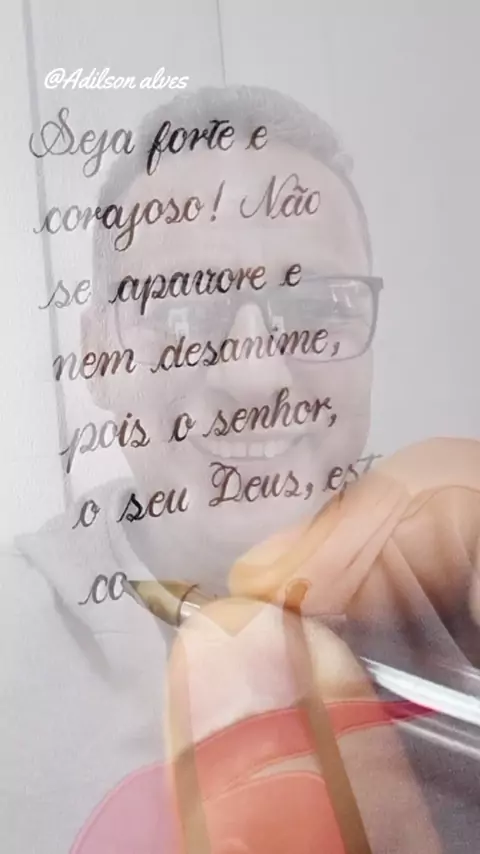 @Adilson alves
Seja forte e
corajoso! Não
se apavore e
nem desanime,
pois o senhor,
o seu Deus, est
co